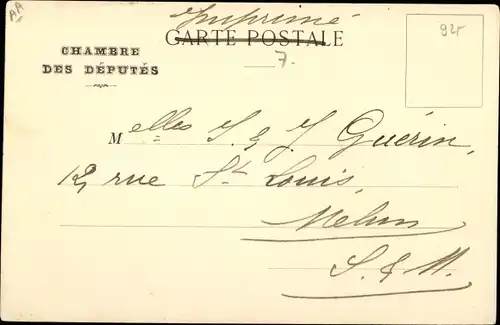 AA
Imprimé
CARTE POSTALE
925
7.
CHAMBRE
DES DÉPUTÉS
Melles S. & J. Guérin,
12, rue St Louis,
Melun
S. & M.